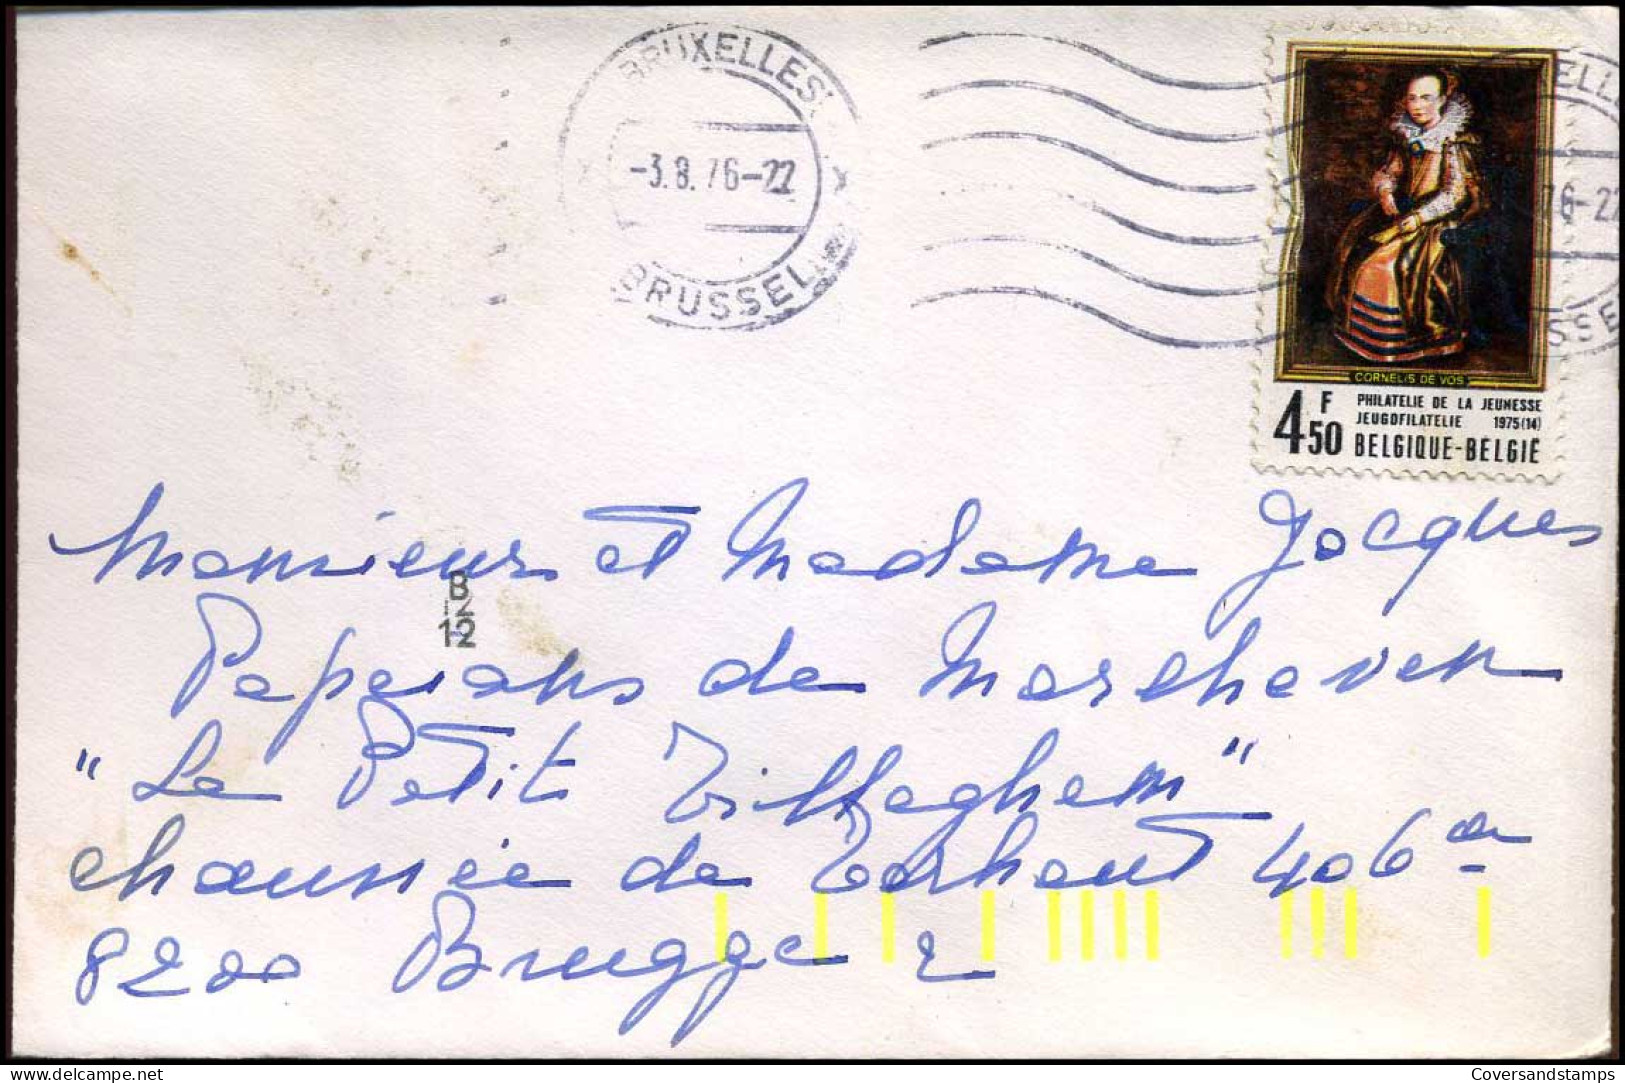 BRUXELLES
-3.8.76-22
BRUSSEL
ELL
76-22
SSE
CORNELIS DE VOS
4 F 50
PHILATELIE DE LA JEUNESSE
JEUGDFILATELIE 1975(14)
BELGIQUE-BELGIË
Monsieur et Madame Jacques
B
12
12
Papeians de Morchoven
"Le Petit Tilleghem"
chaussée de Torhout 406
8200 Brugge 2
Coversandstamps